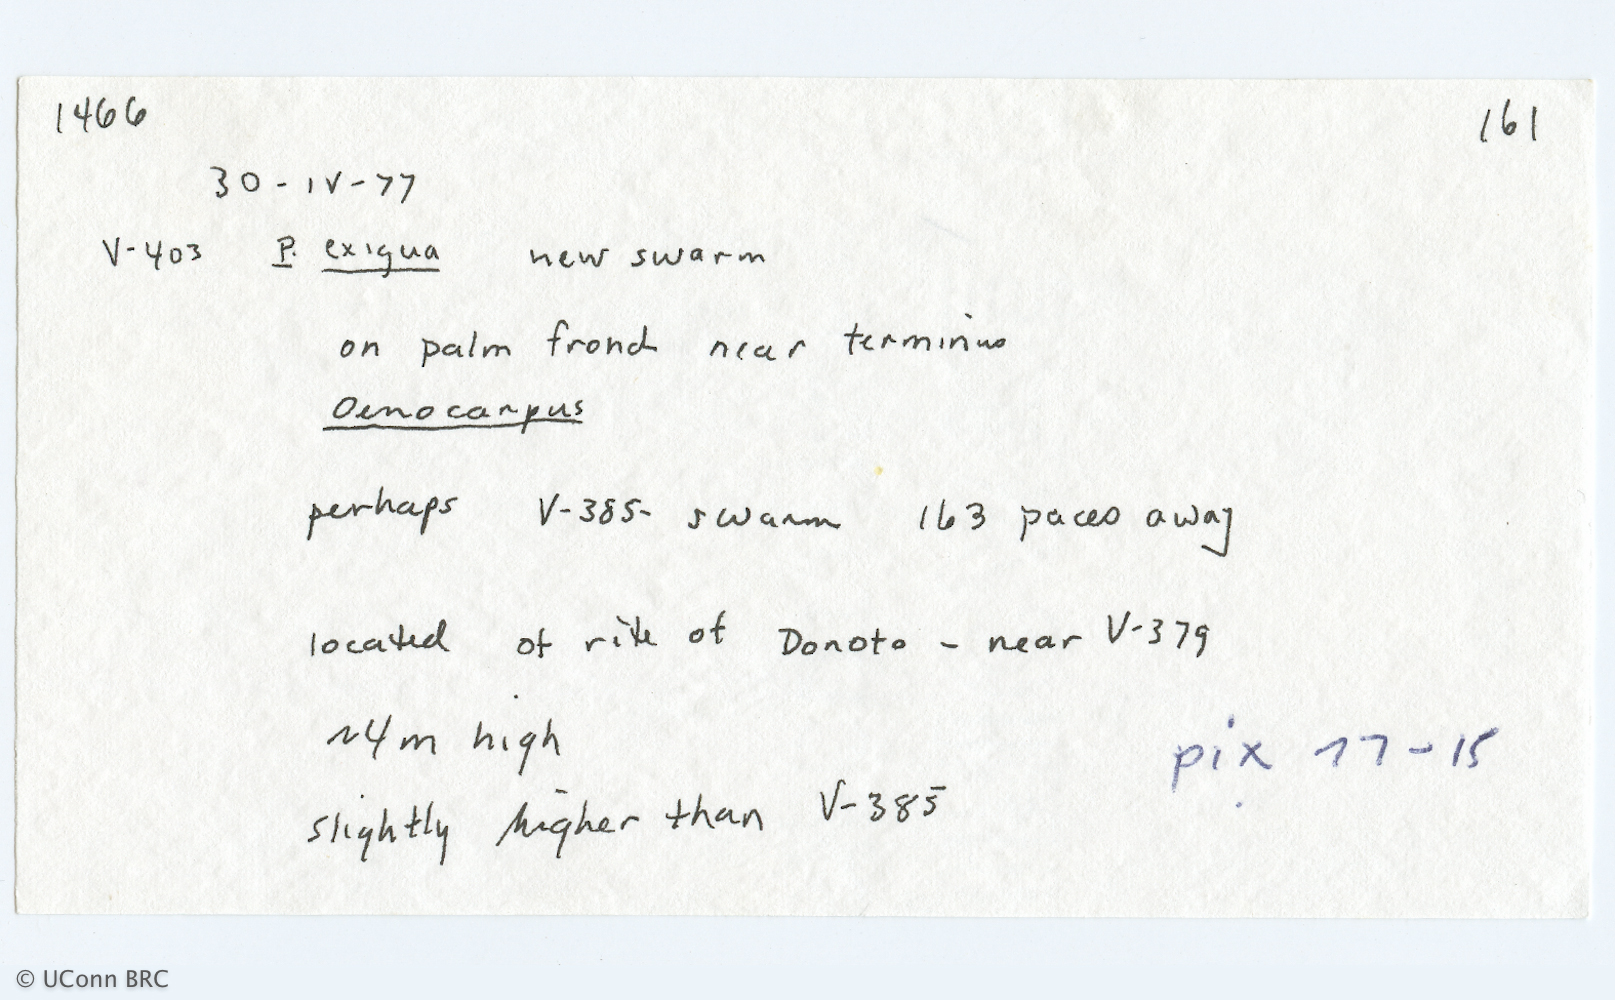 1466 161
30-IV-77
V-403 P. exigua new swarm
on palm frond near terminus
Oenocarpus
perhaps V-385- swarm 163 paces away
located at rite of Donoto - near V-379
~4m high
pix 77-15
slightly higher than V-385
© UConn BRC